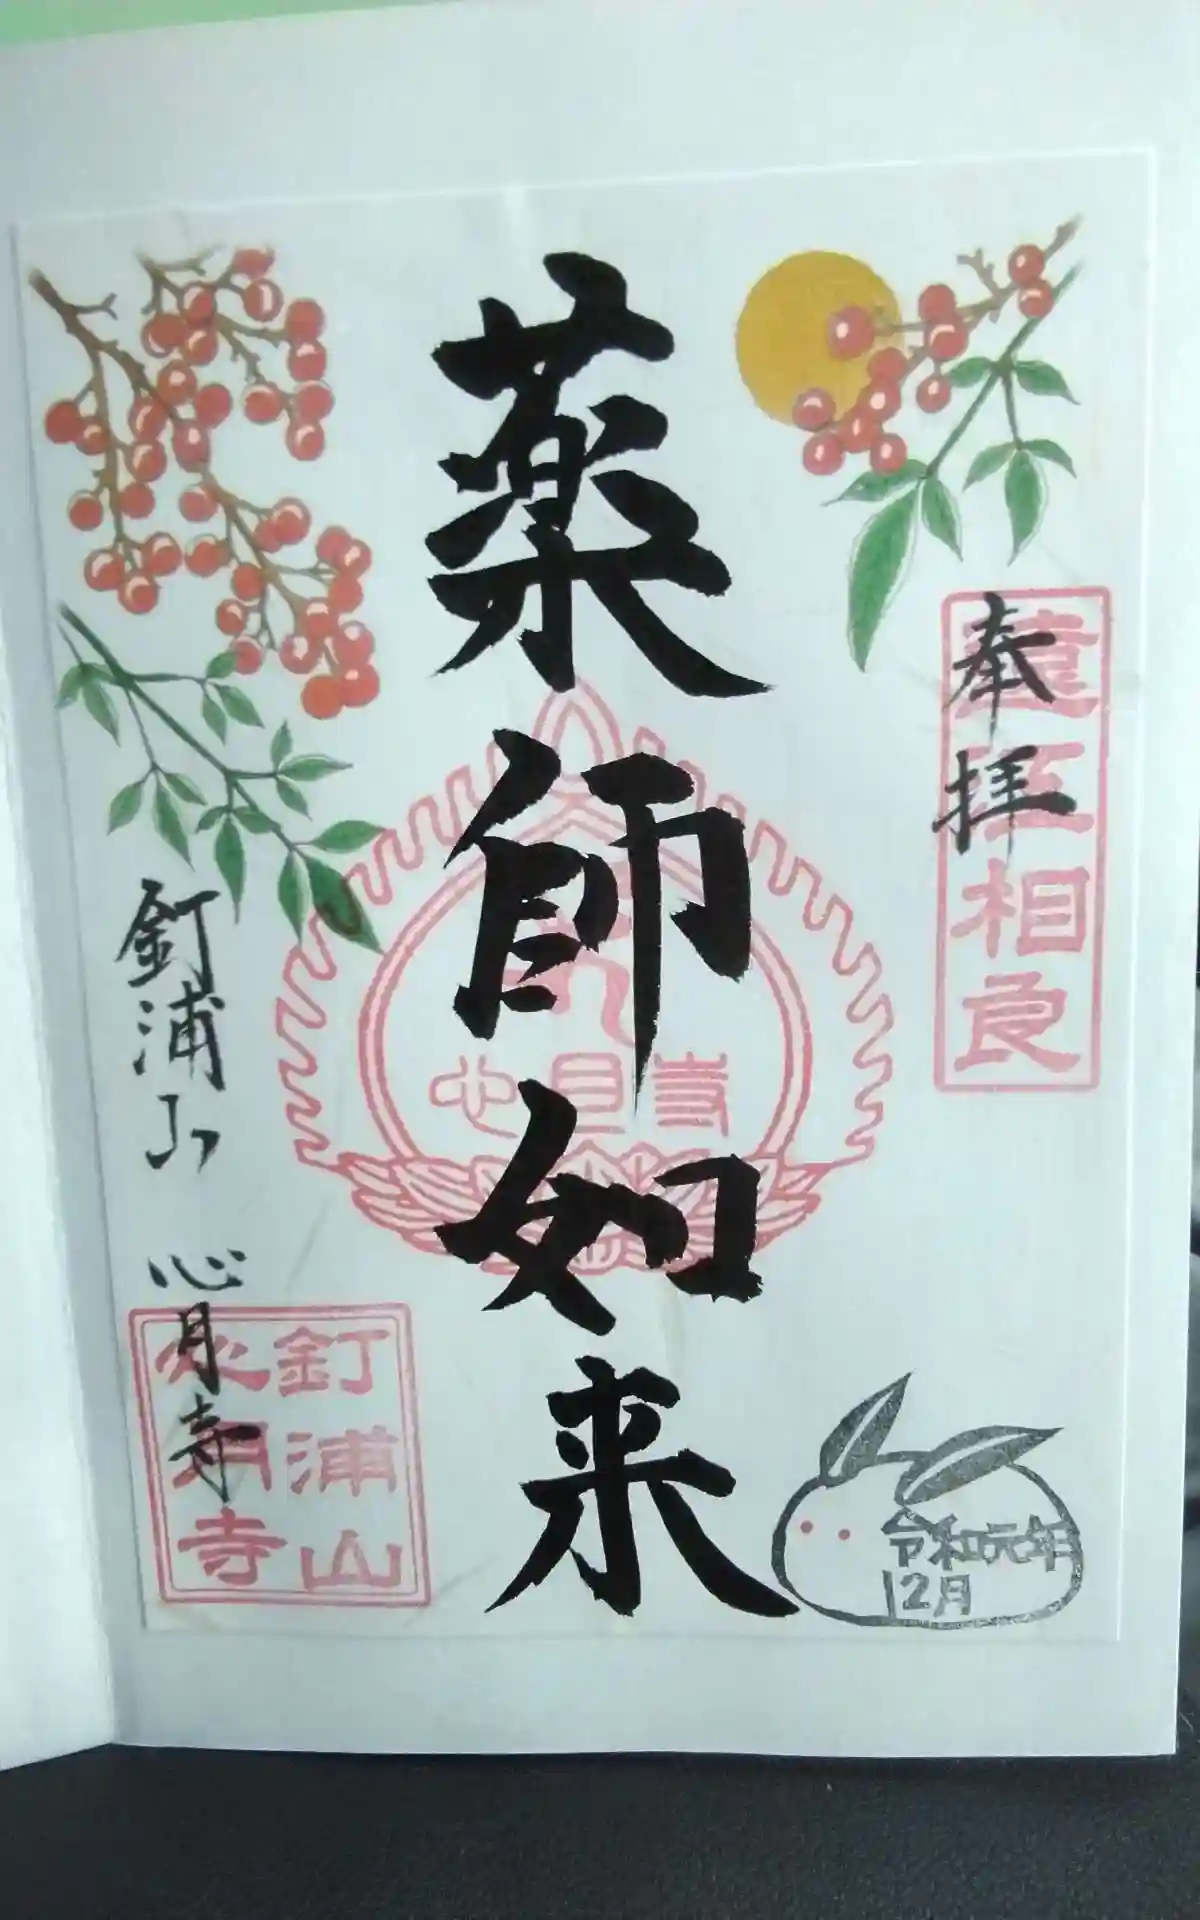 奉拝
遠江相良
薬師如来
釘浦山 心月寺
釘浦山
心月寺
令和元年
12月